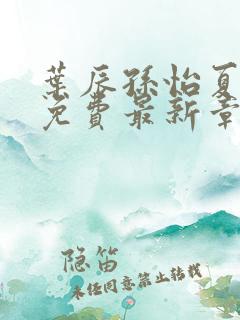 葉辰孫怡夏
免費最新章
隐笛
未经同意禁止转载